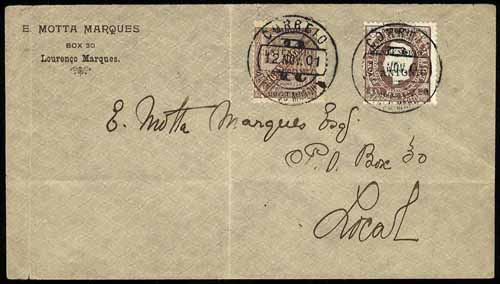 E. MOTTA MARQUES
BOX 30
Lourenço Marques.
CORREIO
12 NOV. 01
NOV.
E. Motta Marques Esq.
P.O. Box 30
Local